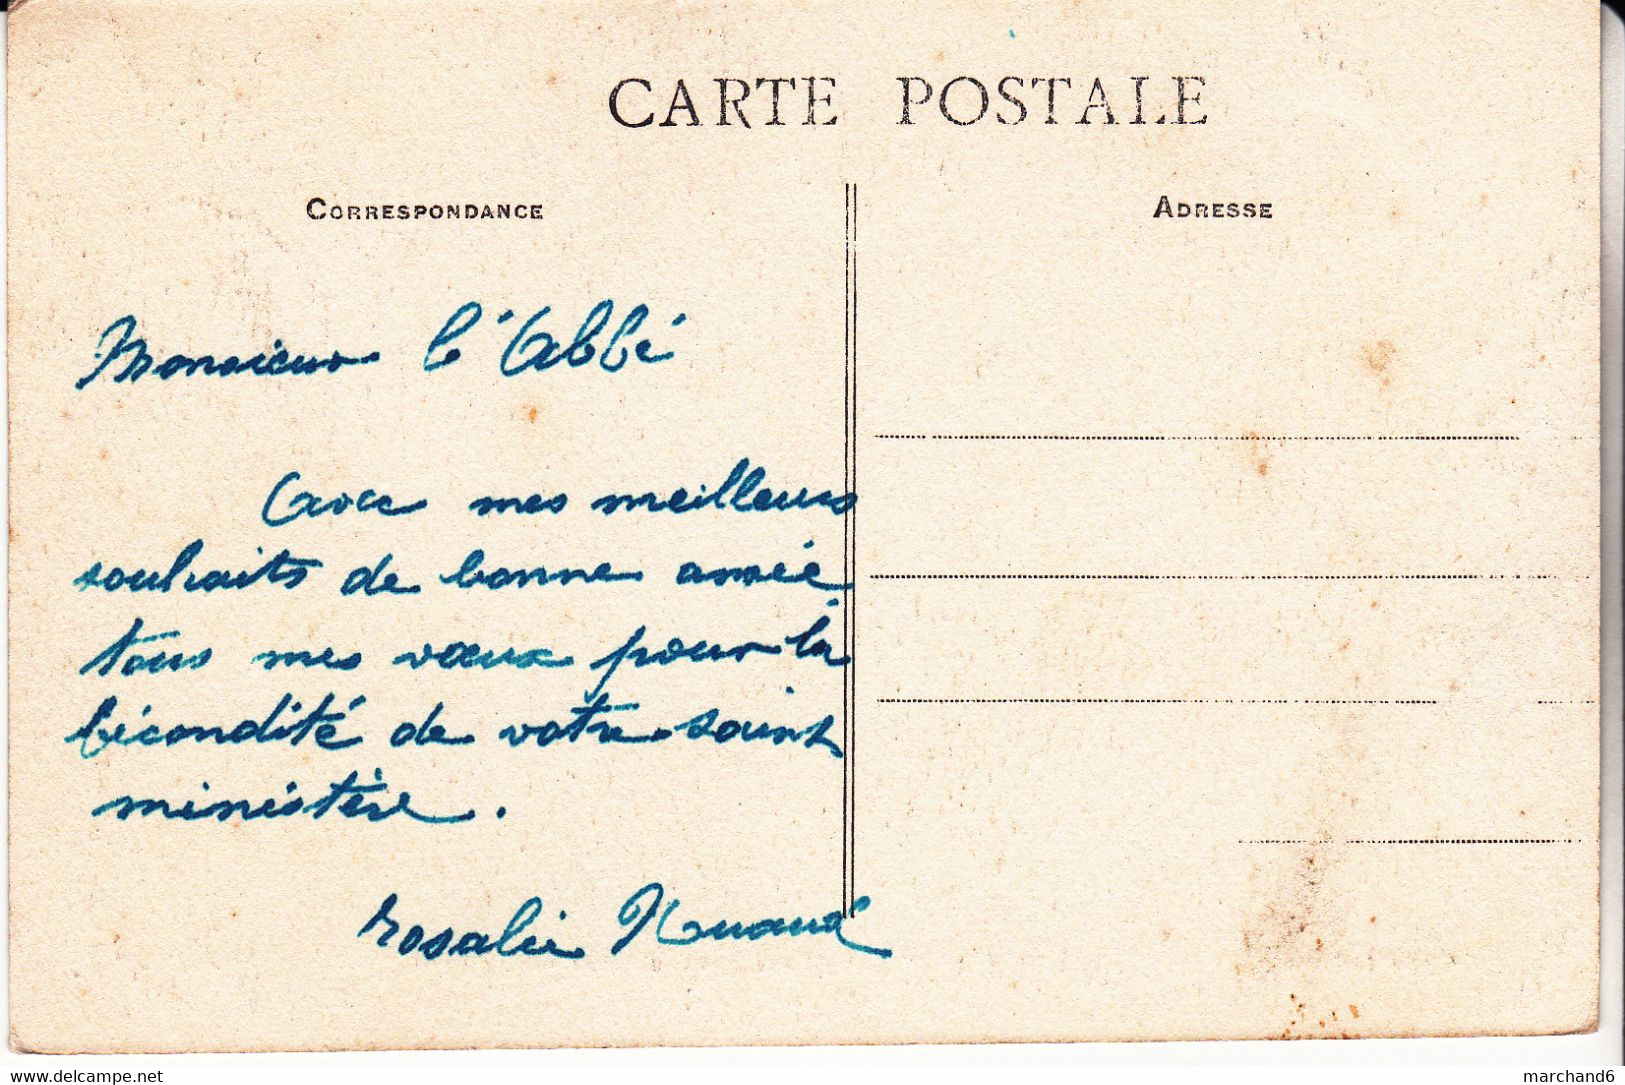 CARTE POSTALE
CORRESPONDANCE
ADRESSE
Monsieur l'Abbé
Avec mes meilleurs
souhaits de bonne année
tous mes vœux pour la
fécondité de votre saint
ministère.
Rosalie
www.delcampe.net
marchand6